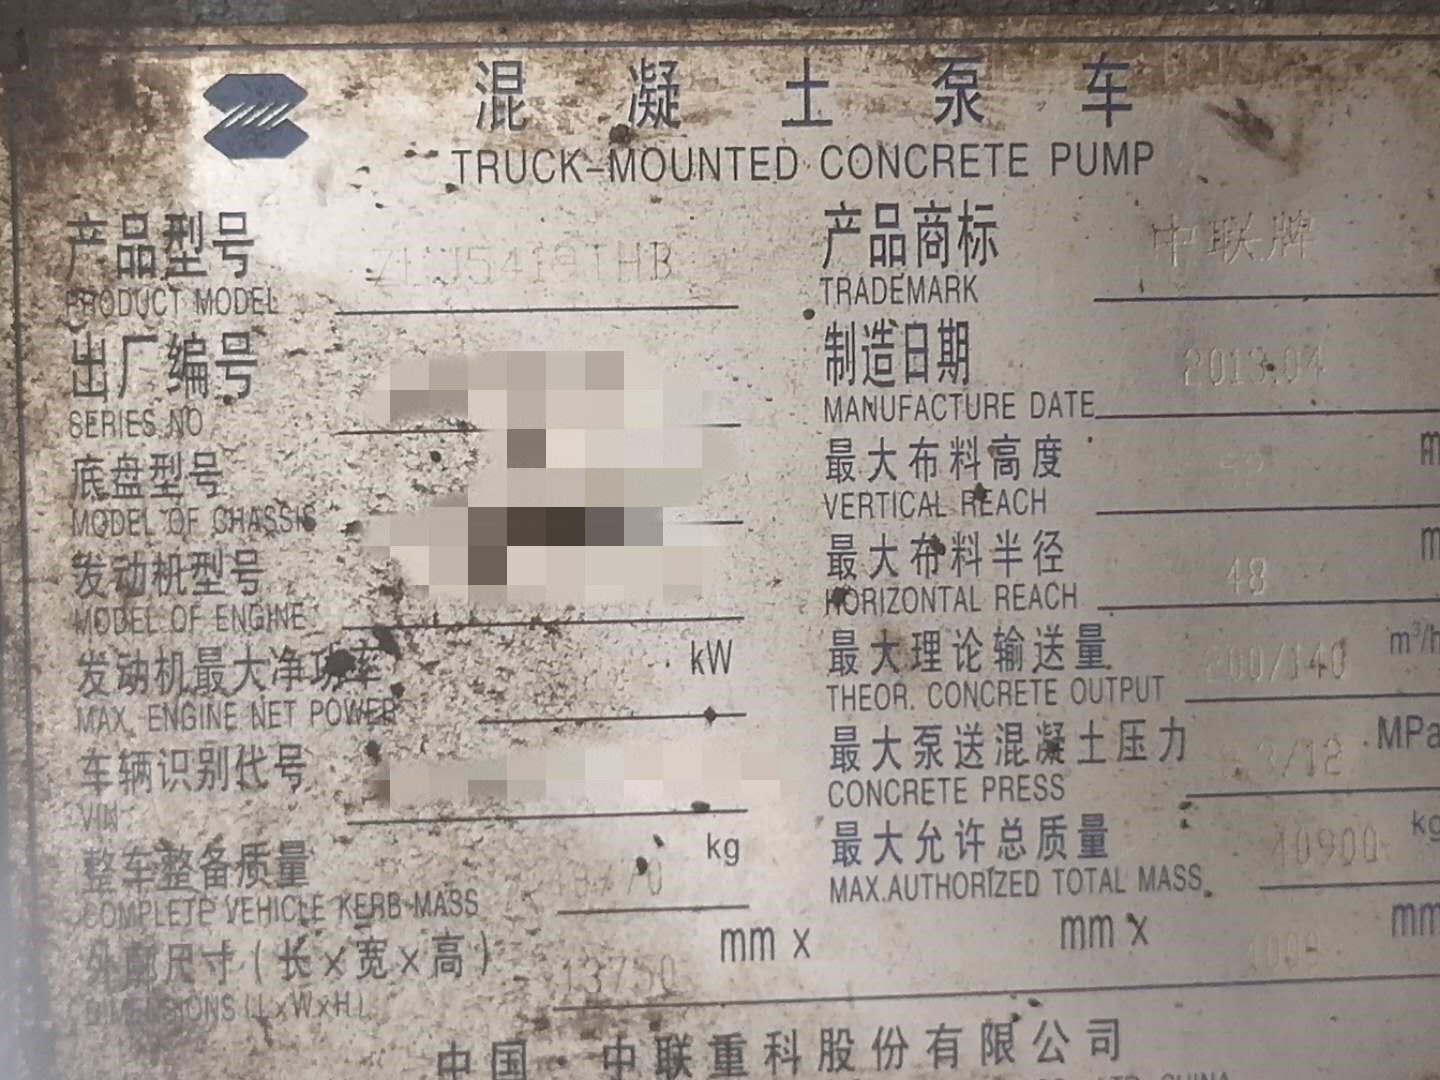 混凝土泵车
TRUCK-MOUNTED CONCRETE PUMP
产品型号
PRODUCT MODEL
产品商标 中联牌
TRADEMARK
出厂编号
SERIES NO
制造日期 2013.04
MANUFACTURE DATE
底盘型号
MODEL OF CHASSIS
最大布料高度 m
VERTICAL REACH
发动机型号
MODEL OF ENGINE
最大布料半径 48 m
HORIZONTAL REACH
发动机最大净功率 kW
MAX. ENGINE NET POWER
最大理论输送量 200/140 m³/h
THEOR. CONCRETE OUTPUT
车辆识别代号
VIN
最大泵送混凝土压力 MPa
CONCRETE PRESS
整车整备质量 kg
COMPLETE VEHICLE KERB MASS
最大允许总质量 40900 kg
MAX.AUTHORIZED TOTAL MASS
外廓尺寸(长×宽×高) 13750 mm x mm x mm
DIMENSIONS (LxWxH)
中国·中联重科股份有限公司